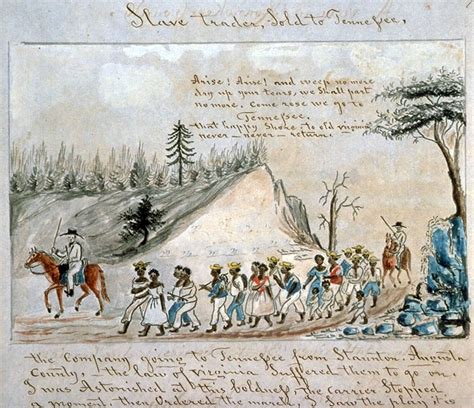 Slave trader, Sold to Tennessee,
Arise! Arise! and weep no more
dry up your tears, we Shall part
no more, Come rose we go to
Tennessee,
that happy Shore, to old virginia
never – never – return.
the Company going to Tennessee from Staunton, Augusta
County, the law of virginia Suffered them to go on.
I was Astonished at this boldness, the Carrier Stopped
a moment, then Ordered the march, I Saw the play it is